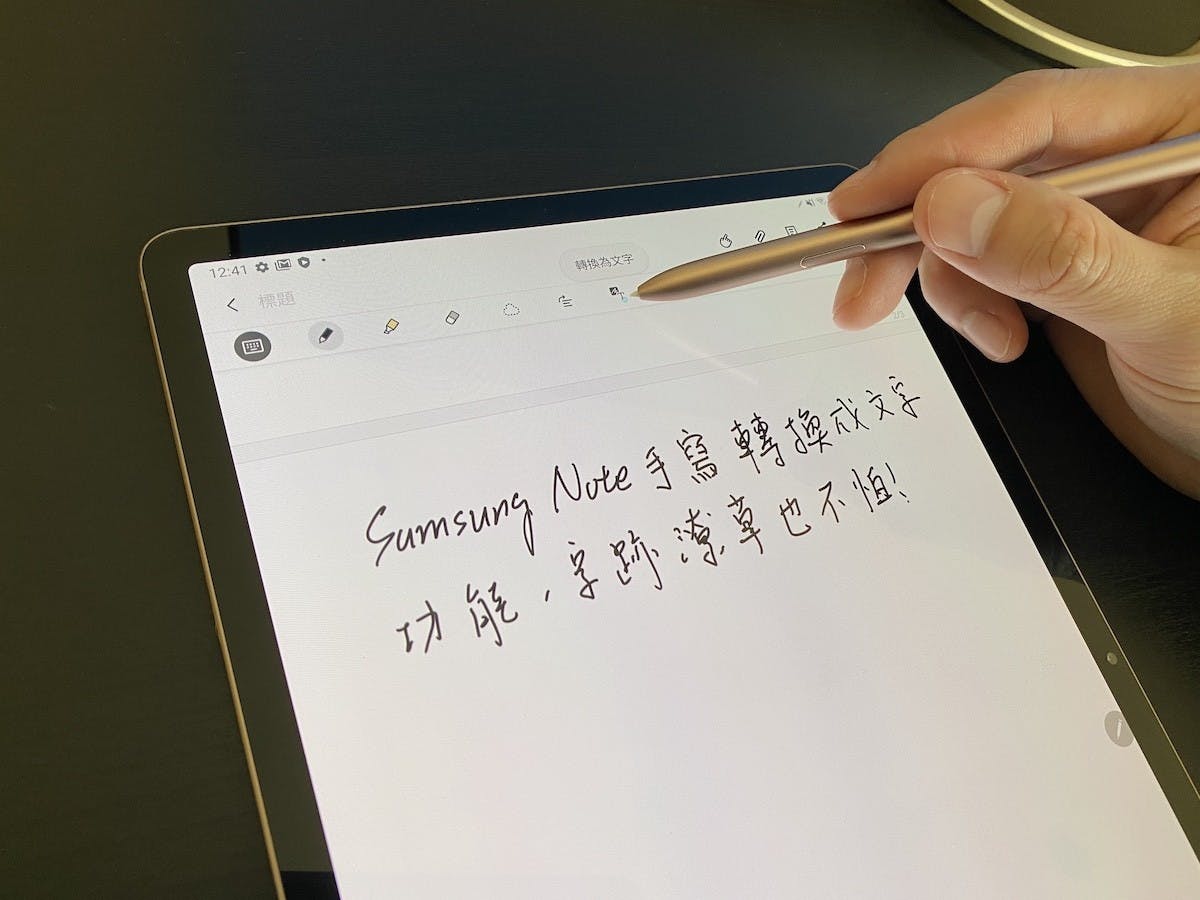 12:41
轉換為文字
標題
2/3
Samsung Note 手寫轉換成文字
功能，字跡潦草也不怕！